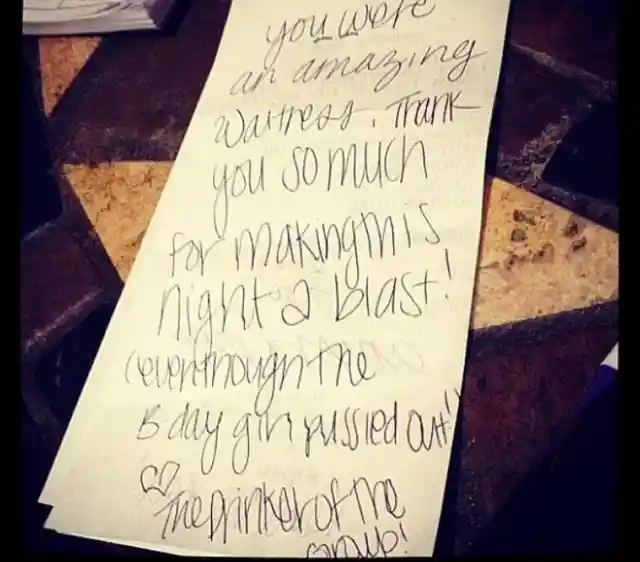 you were
an amazing
waitress. Thank
you so much
for making this
night a blast!
(eventhough the
B day girl pussied out!!
♡ The Drinker of the
group!